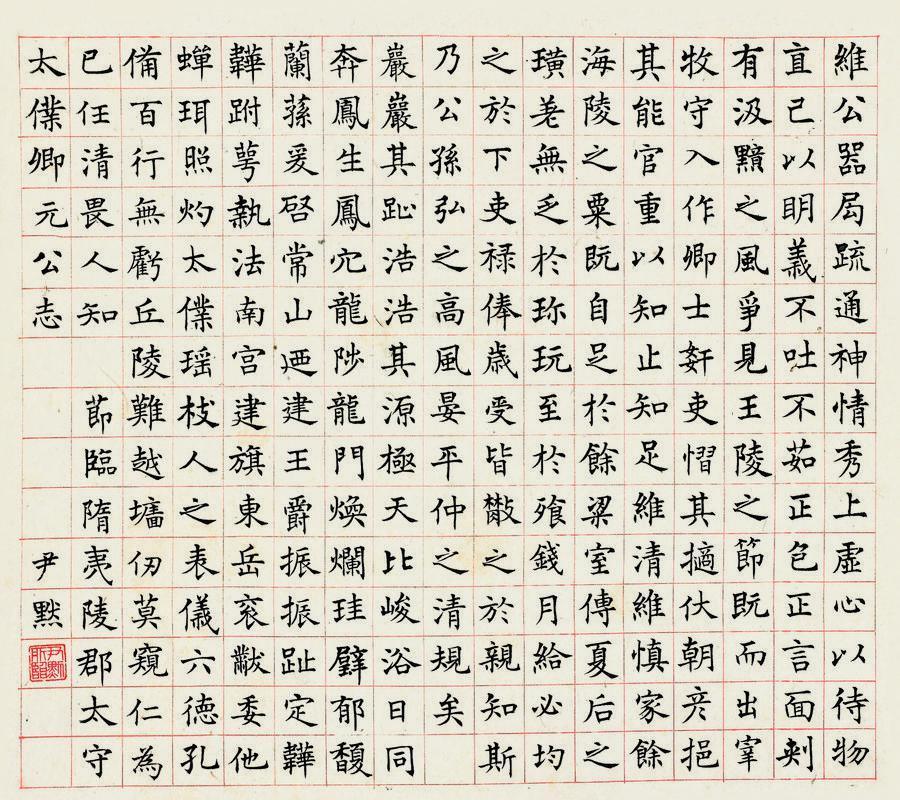 維公器局疏通神情秀上虛心以待物
直己以明義不吐不茹正色正言面刺
有汲黯之風爭見王陵之節既而出宰
牧守入作卿士姧吏慴其擿伏朝彦挹
其能官重以知止知足維清維慎家餘
海陵之粟既自足於餘粱室傳夏后之
璜差無乏於珎玩至於飱錢月給必均
之於下吏禄俸歲受皆散之於親知斯
乃公孫弘之高風晏平仲之清規矣
巖巖其趾浩浩其源極天比峻浴日同
奔鳳生鳳穴龍陟龍門煥爛珪璧郁馥
蘭蓀爰啓常山迺建王爵振振趾定韡
韡跗萼執法南宮建旗東岳衮黻委他
蟬珥照灼太僕瑶枝人之表儀六德孔
備百行無虧丘陵難越墻仞莫窺仁為
已任清畏人知 節臨隋夷陵郡太守
太僕卿元公志 尹默